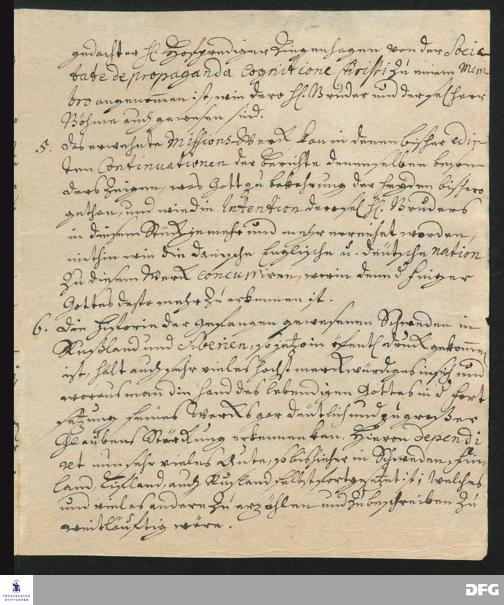 gedachter H. Hofprediger Ziegenhagen von der Socie-
tate de propaganda Cognitione Christi zu einem Mem-
bro angenom̃en ist, wie dero H. Bruder und der sel. Herr
Böhme auch gewesen sind.
5. Das erwehnte Missions-Werck kan in denen bißher edir-
ten Continuationen der Berichte denenselben beson-
ders zeigen, was Gott zu bekehrung der Heyden bißhero
gethan, und wie die Intention dero sel. H. Bruders
in diesem Stück je mehr und mehr erreichet worden,
mithin wie die dänische Englische u. deutsche nation
zu diesem Werck concurriren, worin denn d. Finger
Gottes desto mehr zu erkennen ist.
6. Die Historie der gefangen gewesenen Schweden in
Rußland und Siberien, so jetzo in öfentl. druck gekom̃en
ist, hält auch sehr vieles höchst merckwürdiges in sich und
woraus man die Hand des lebendigen Gottes in d. fort-
setzung seines Wercks gar deutlich und zu großer
Glaubens Stärckung erkennen kan. Hievon dependi-
ret nun sehr vieles Gute, so bishieher in Schweden, Fin-
land, Liefland, auch Rußland selbst fortgesetzt ist; welches
und vieles andere zu erzählen und zu beschreiben zu
weitläuftig wäre.
FRANCKESCHE
STIFTUNGEN
DFG